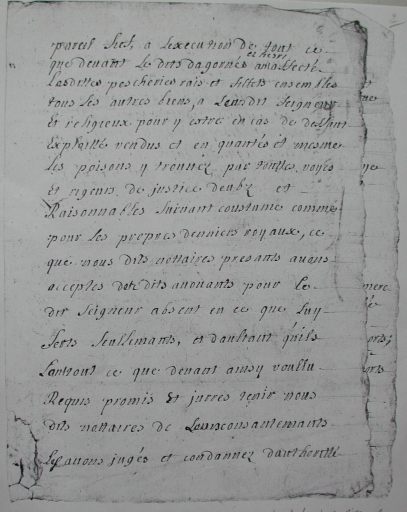 pareil sief, a lexecution de tout ce
que devant Le dros dagornes
et hoirs
a affecte
Lesdittes pescheries rais et fillets ensembles
tous ses autres biens, a Lendit Seigneur
et religieux pour y estre en cas de deffaut
Exploitté vendus et en quantes et mesme
les poisons y trouvéz par touttes voyes
et rigeurs de justice deubz et
Raisonnables suivant coustume comme
pour les propres denniers royaux, ce
que nous dits nottaires presants avons
acceptés
pour le
dit Seigneur absent en ce que luy
sert seullemants, et daultant quils
Lont tout ce que devant ainsy voullu
Requis promis et jurés tenir nous
dits nottaires de Leurs consantemants
Les avons jugés et condannez dauthoritté